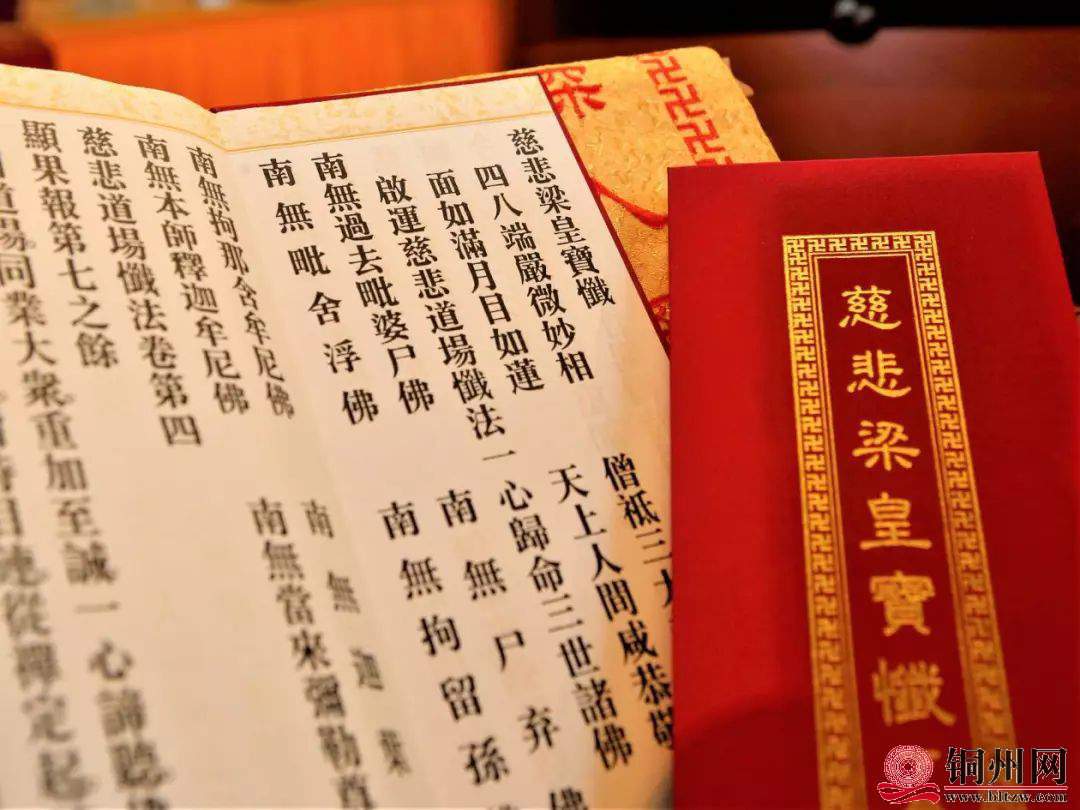 慈悲梁皇寶懺
四八端嚴微妙相 僧祇三大
面如滿月目如蓮 天上人間咸恭敬
啟運慈悲道場懺法一心歸命三世諸佛
南無過去毗婆尸佛 南無尸弃佛
南無毗舍浮佛 南無拘留孫
南無拘那含牟尼佛 南無迦葉
南無本師釋迦牟尼佛 南無當來彌勒尊
慈悲道場懺法卷第四
顯果報第七之餘
道場同業大衆。重加至誠。一心諦聽。
時目連從禪定起
慈悲梁皇寶懺
铜州网
www.hltzw.com